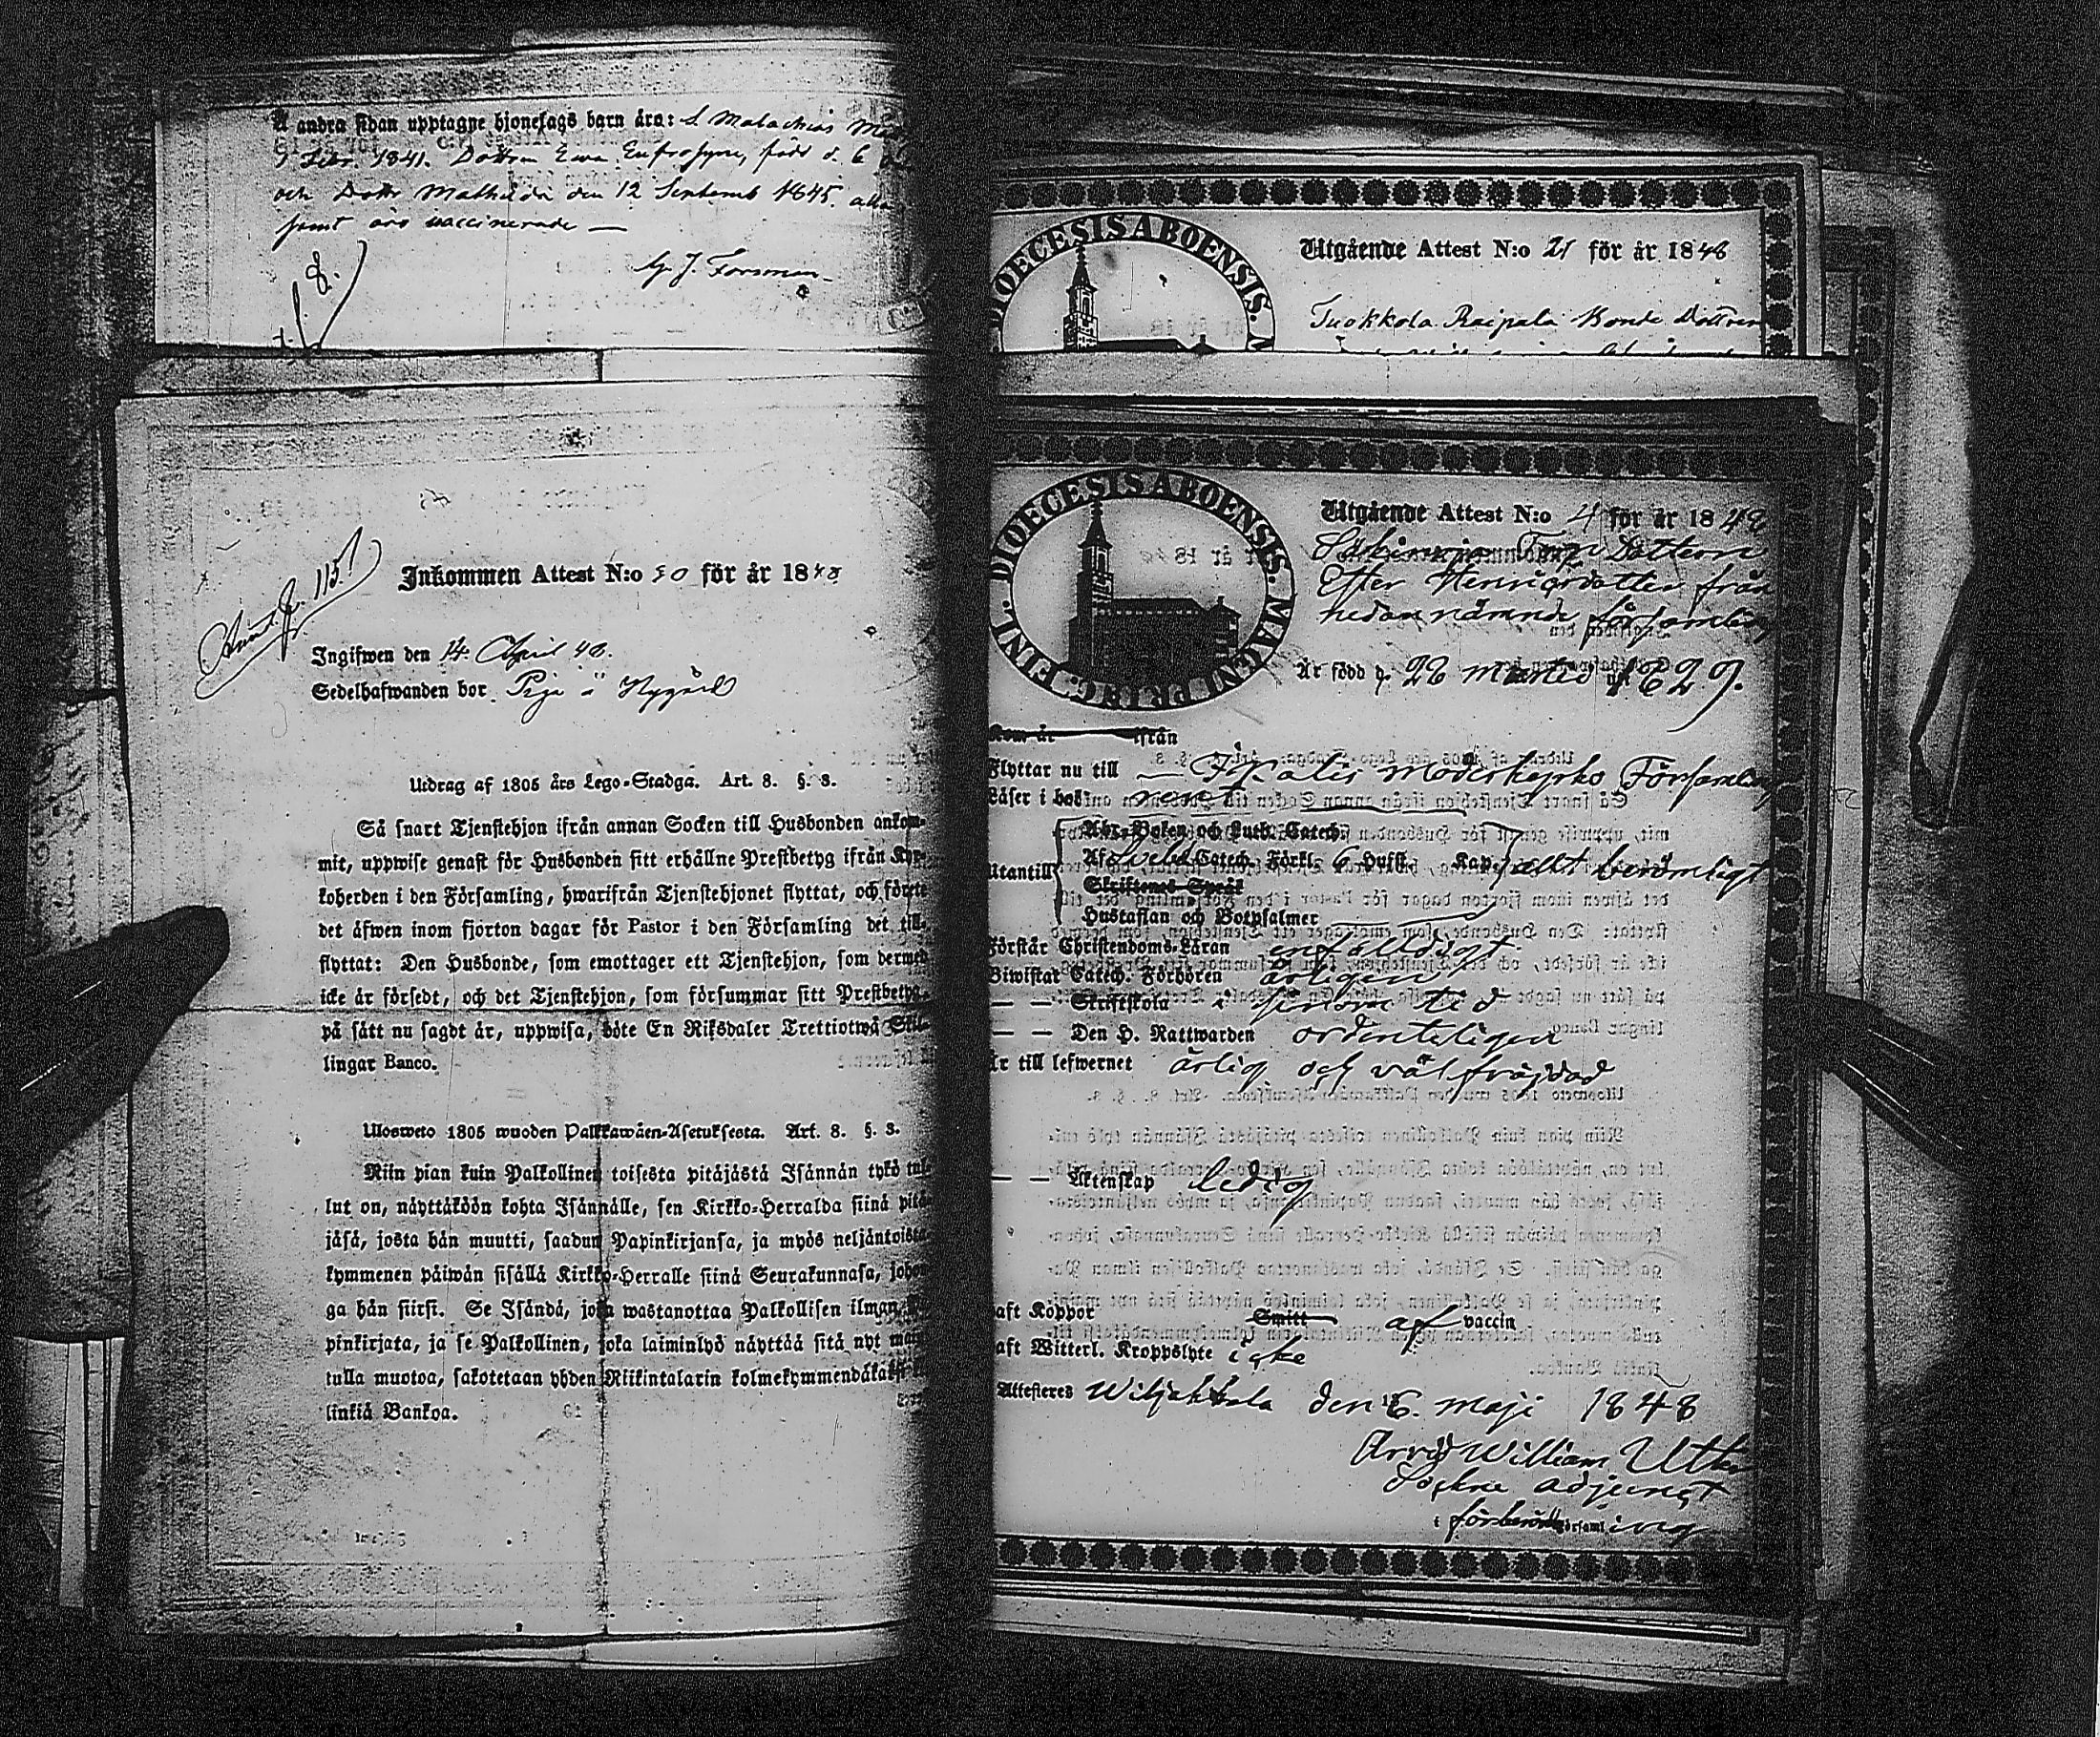 Å andra sidan upptagne hjonelags barn äro: S. Malachias
Febr. 1841. Dottren Ewa Eufrosyne, född d. 6
och Dottr Mathilda den 12 Septemb 1845. alla
samt äro vaccinerade —
G. J. Forsman
Inkommen Attest N:o 50 för år 1848
Ingifwen den 14. April 48.
Sedelhafwanden bor Piga i Nygård
Utdrag af 1805 års Lego-Stadga. Art. 8. §. 3.
Så snart Tjenstehjon ifrån annan Socken till Husbonden ankom-
mit, uppwise genast för Husbonden sitt erhållne Prestbetyg ifrån Kyr-
koherden i den Församling, hwarifrån Tjenstehjonet flyttat, och förete
det äfwen inom fjorton dagar för Pastor i den Församling det till-
flyttat: Den Husbonde, som emottager ett Tjenstehjon, som dermed
icke är försedt, och det Tjenstehjon, som försummar sitt Prestbetyg,
på sätt nu sagdt är, uppwisa, böte En Riksdaler Trettiotwå Skil-
lingar Banco.
Ulosweto 1805 wuoden Palkkawäen-Asetuksesta. Art. 8. §. 3.
Niin pian kuin Palkollinen toisesta pitäjästä Isännän tykö tul-
lut on, näyttäköön kohta Isännälle, sen Kirkko-Herralda siinä pitä-
jäsä, josta hän muutti, saadun Papinkirjansa, ja myös neljäntoista-
kymmenen päiwän sisällä Kirkko-Herralle siinä Seurakunnasa, johon-
ga hän siirsi. Se Isändä, joka wastanottaa Palkollisen ilman Pa-
pinkirjata, ja se Palkollinen, joka laiminlyö näyttää sitä nyt mai-
tulla muotoa, sakotetaan yhden Riikintalarin kolmekymmendäkaksi
linkiä Bankoa.
DIOECESIS ABOENSIS. M
Utgående Attest N:o 21 för år 1848
Tuokkola Raipala Bonde Dottren
FINL. DIOECESIS ABOENSIS. MAGNI PRINC.
Utgående Attest N:o 4 för år 1848
Dottern
Ester Henricsdotter från
nedannämnde församling
Är född d. 22 martii 1829.
Kom år ifrån
Flyttar nu till — moderkyrko Församling
Läser i bok rent
Utantill
Abc-Boken och Luth. Catech.
Af Svebel. Catech. Förkl. 6 Hufst. Kap. allt berömligt
Skriftenes Språk
Hustaflan och Botpsalmer
Förstår Christendoms-Läran enfalldigt
Biwistat Catech. Förhören årligen
— — Skriftskola i sinom tid
— — Den H. Nattwarden ordenteligen
Är till lefwernet ärlig och väl fräjdad
— — Äktenskap ledig
Haft Koppor Smitt af vaccin
Haft Witterl. Kroppslyte icke
Attesteres Wiljakkala den 6. maji 1848
Arvid William
Sockne adjunct
i förberörde församling